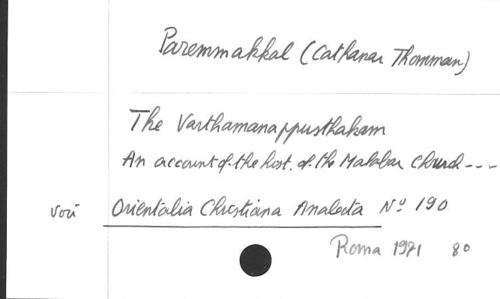 Paremmakkal (Cathanar Thomman)
The Varthamanappusthakam
An account of the hist. of the Malabar Church ---
Voir Orientalia Christiana Analecta N° 190
Roma 1971 8°